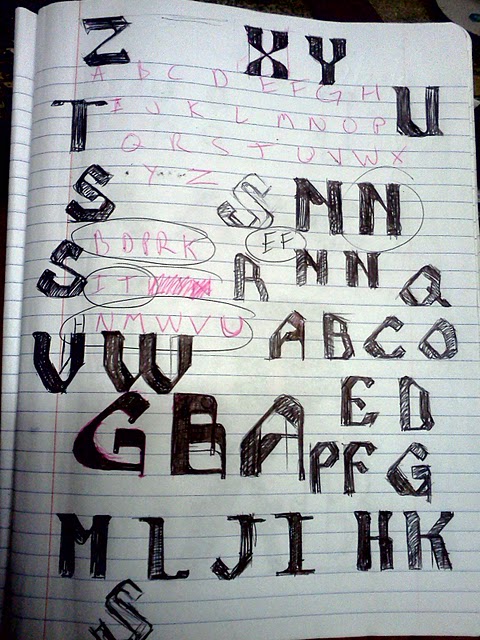 Z X Y
A B C D E F G H
T I J K L M N O P U
Q R S T U V W X
Y Z
S S M N
B D P R K E F
S I T R N N Q
H N M W V U
V W A B C D
E D
G B A P F G
M L J I H K
S